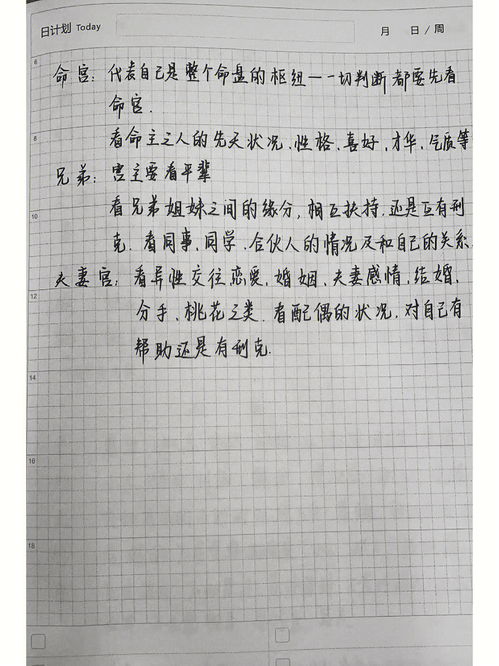 日计划 Today
月 日/周
6
命宫：代表自己是整个命盘的枢纽一一切判断都要先看
命宫.
8
看命主之人的先天状况、性格、喜好、才华、气质等
兄弟：宫主要看平辈
10
看兄弟姐妹之间的缘分，相互扶持，还是互有刑
克. 看同事、同学、合伙人的情况及和自己的关系
夫妻宫：看异性交往恋爱，婚姻，夫妻感情，结婚，
12
分手、桃花之类. 看配偶的状况，对自己有
帮助还是有刑克.
14
16
18